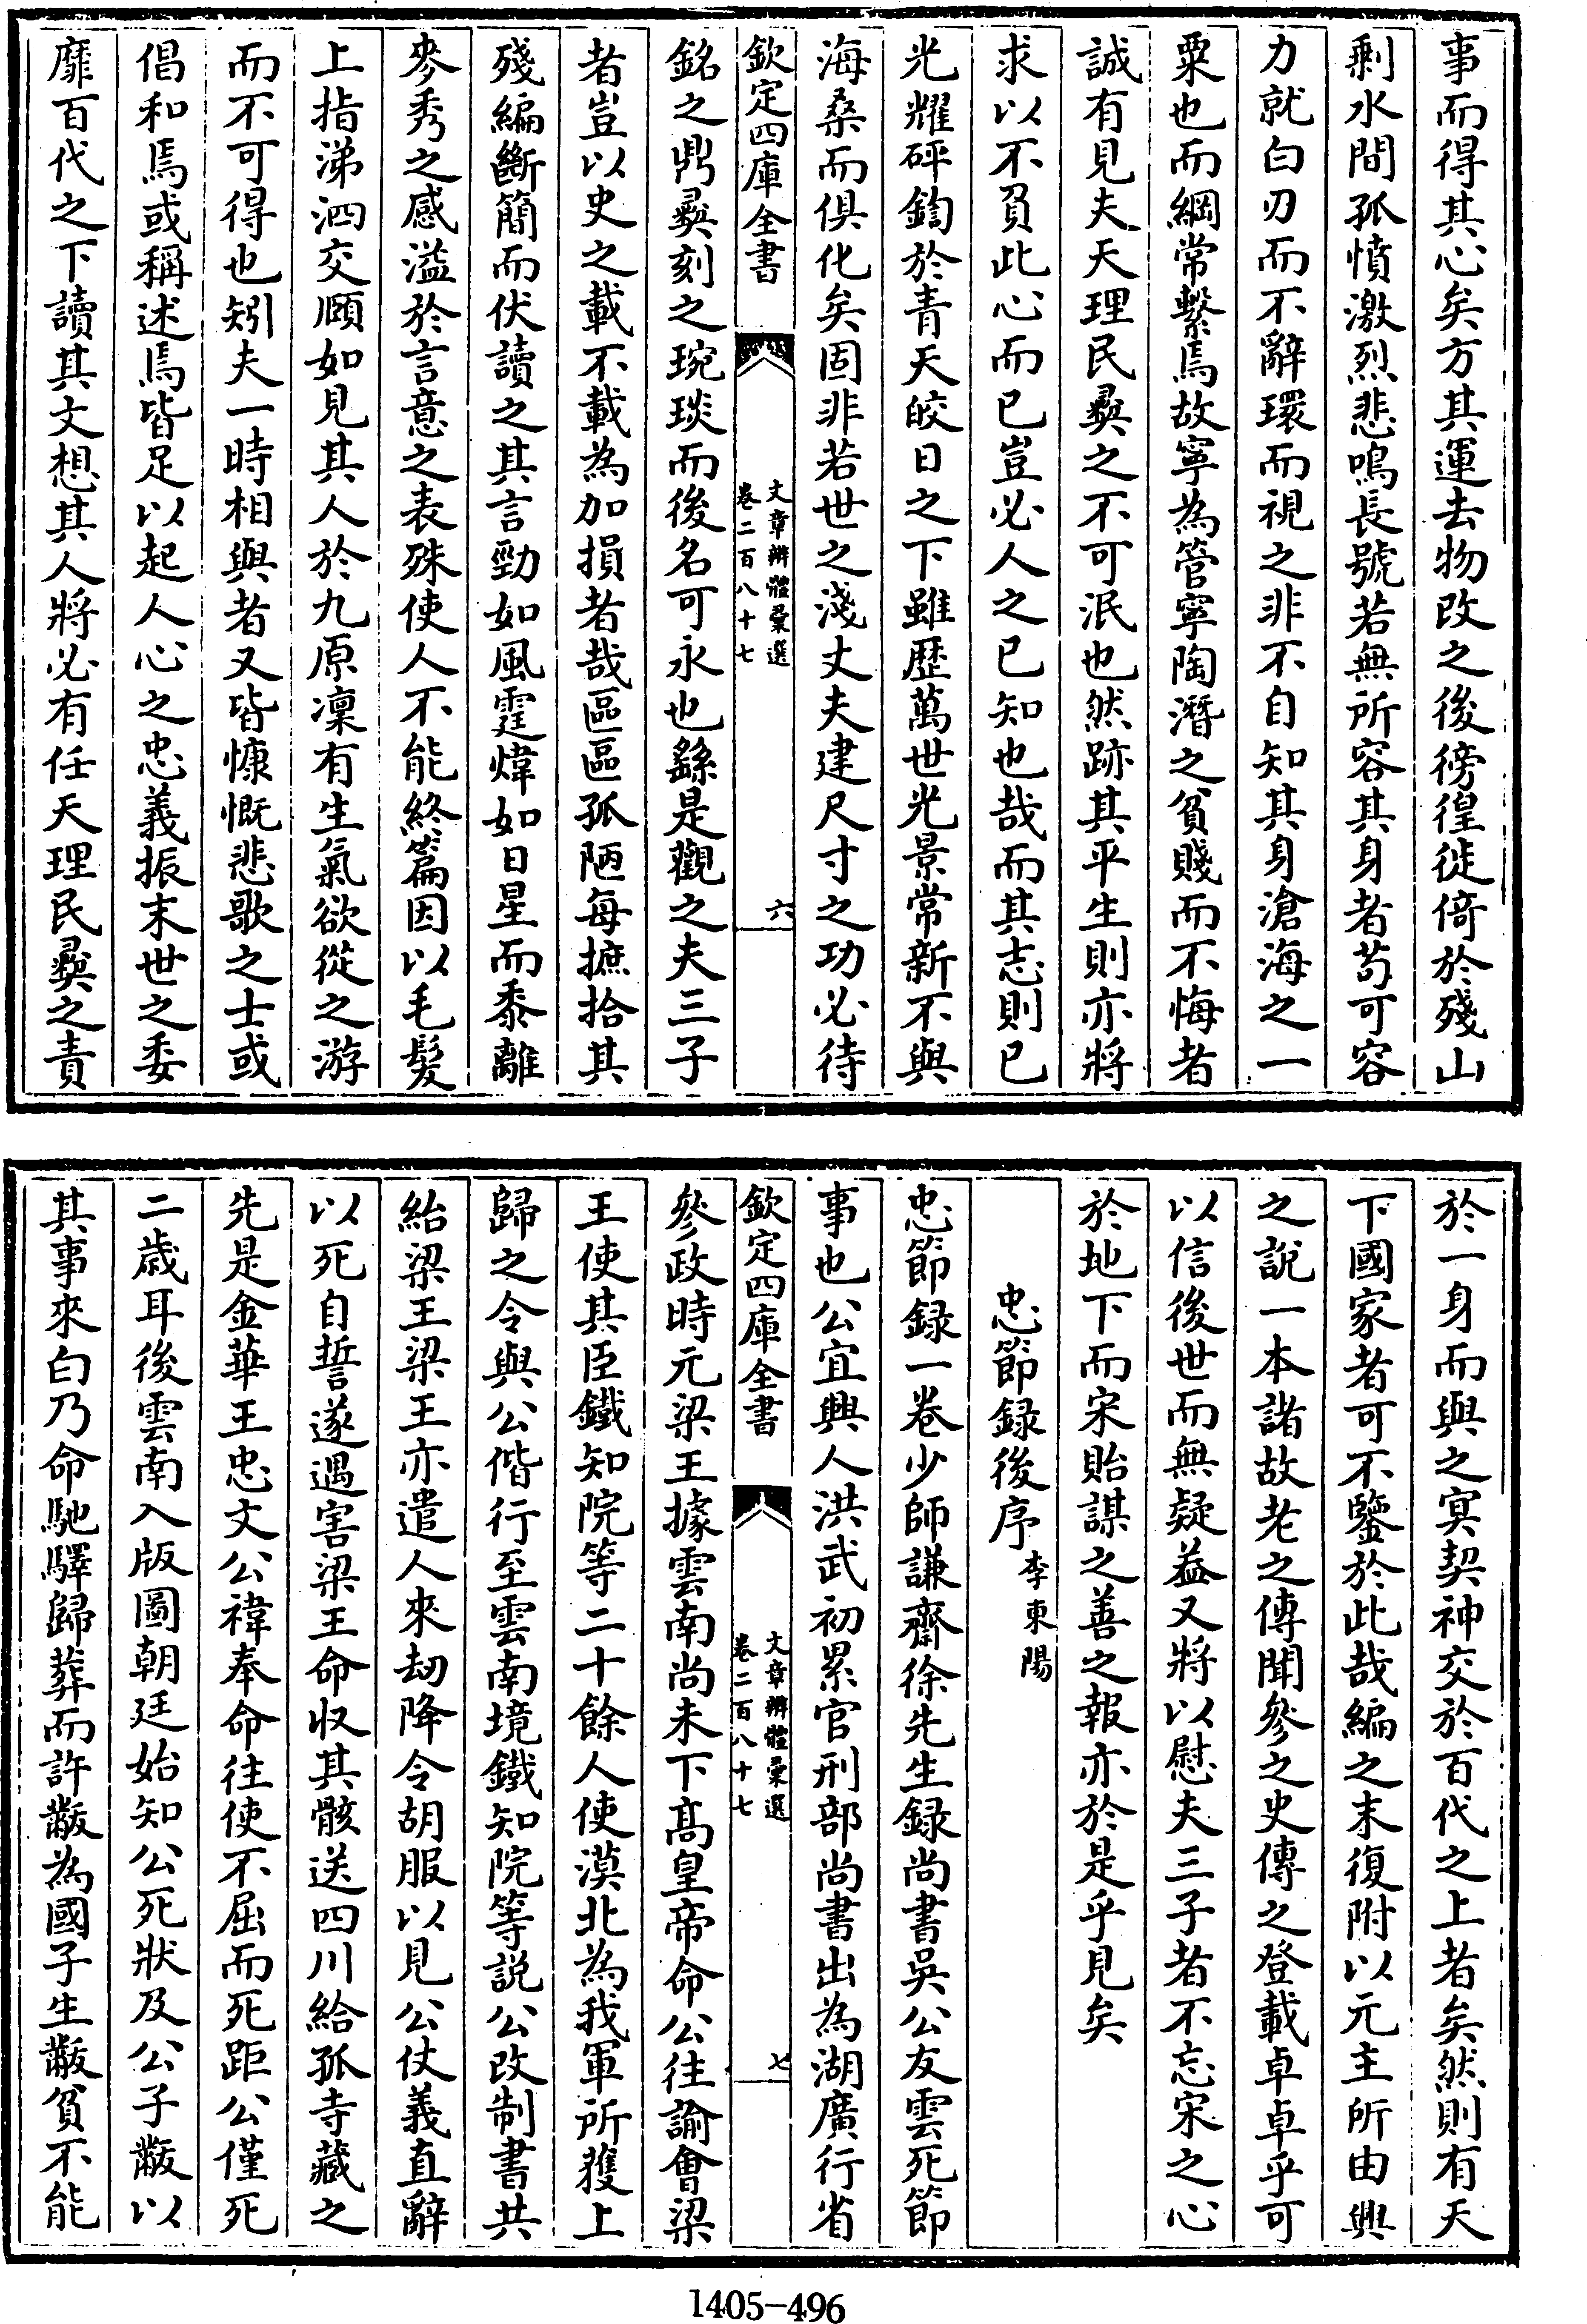 事而得其心矣方其運去物改之後徬徨徙倚於殘山
剩水間孤憤激烈悲鳴長號若無所容其身者苟可容
力就白刃而不辭環而視之非不自知其身滄海之一
粟也而綱常繫焉故寧為管寧陶潛之貧賤而不悔者
誠有見夫天理民彞之不可泯也然跡其平生則亦將
求以不負此心而已豈必人之已知也哉而其志則已
光耀砰鍧於青天皎日之下雖歴萬世光景常新不與
海桑而俱化矣固非若世之淺丈夫建尺寸之功必待
欽定四庫全書
文章辨體彚選
卷二百八十七
六
銘之鼎彞刻之琬琰而後名可永也繇是觀之夫三子
者豈以史之載不載為加損者哉區區孤陋每摭拾其
殘編斷簡而伏讀之其言勁如風霆煒如日星而黍離
麥秀之感溢於言意之表殊使人不能終篇因以毛髮
上指涕泗交頤如見其人於九原凜有生氣欲從之游
而不可得也矧夫一時相與者又皆慷慨悲歌之士或
倡和焉或稱述焉皆足以起人心之忠義振末世之委
靡百代之下讀其文想其人將必有任天理民彞之責
於一身而與之冥契神交於百代之上者矣然則有天
下國家者可不鑒於此哉編之末復附以元主所由興
之說一本諸故老之傳聞參之史傳之登載卓卓乎可
以信後世而無疑益又將以慰夫三子者不忘宋之心
於地下而宋貽謀之善之報亦於是乎見矣
忠節録後序李東陽
忠節録一卷少師謙齋徐先生録尚書吳公友雲死節
事也公宜興人洪武初累官刑部尚書出為湖廣行省
欽定四庫全書
文章辨體彚選
卷二百八十七
七
參政時元梁王據雲南尚未下髙皇帝命公往諭會梁
王使其臣鐵知院等二十餘人使漠北為我軍所獲上
歸之令與公偕行至雲南境鐵知院等説公改制書共
紿梁王梁王亦遣人來刼降令胡服以見公仗義直辭
以死自誓遂遇害梁王命収其骸送四川給孤寺藏之
先是金華王忠文公禕奉命往使不屈而死距公僅死
二歳耳後雲南入版圖朝廷始知公死狀及公子黻以
其事來白乃命馳驛歸葬而許黻為國子生黻貧不能
1405-496